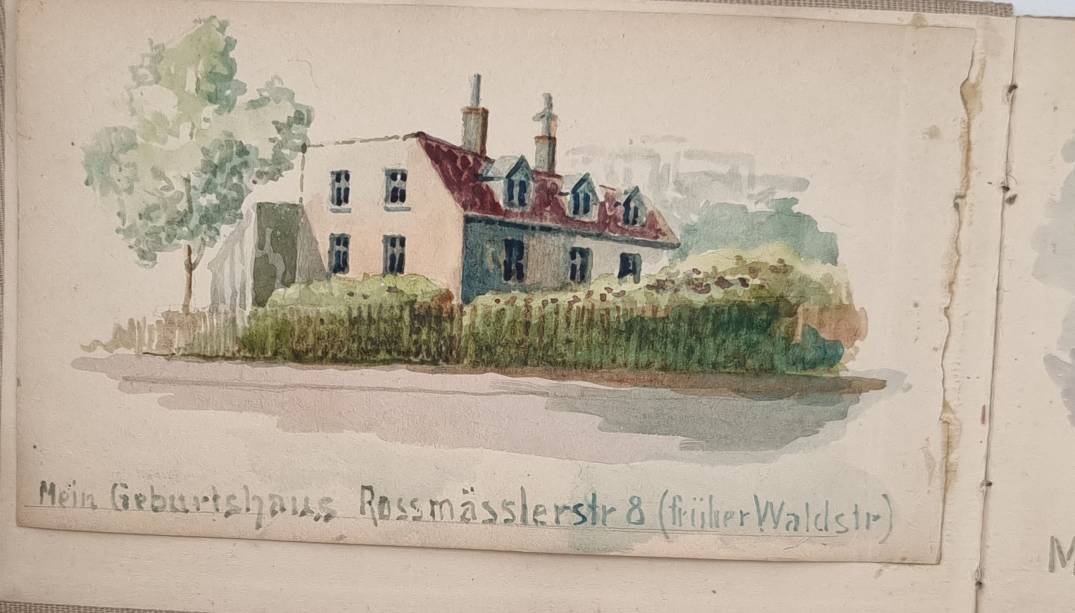 Mein Geburtshaus Rossmässlerstr 8 (früher Waldstr)
M